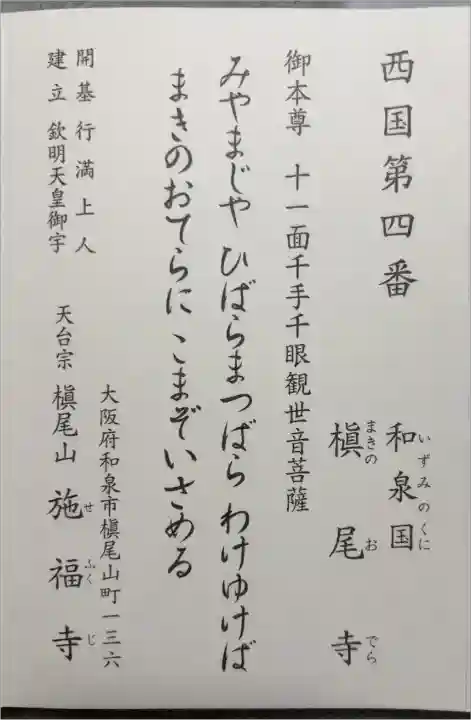 西国第四番
和泉国
いずみのくに
槇尾寺
まきの お でら
御本尊 十一面千手千眼観世音菩薩
みやまじや ひばらまつばら わけゆけば
まきのおてらに こまぞいさめる
開基 行満上人
建立 欽明天皇御宇
大阪府和泉市槇尾山町一三六
天台宗 槇尾山 施福寺
せ ふく じ